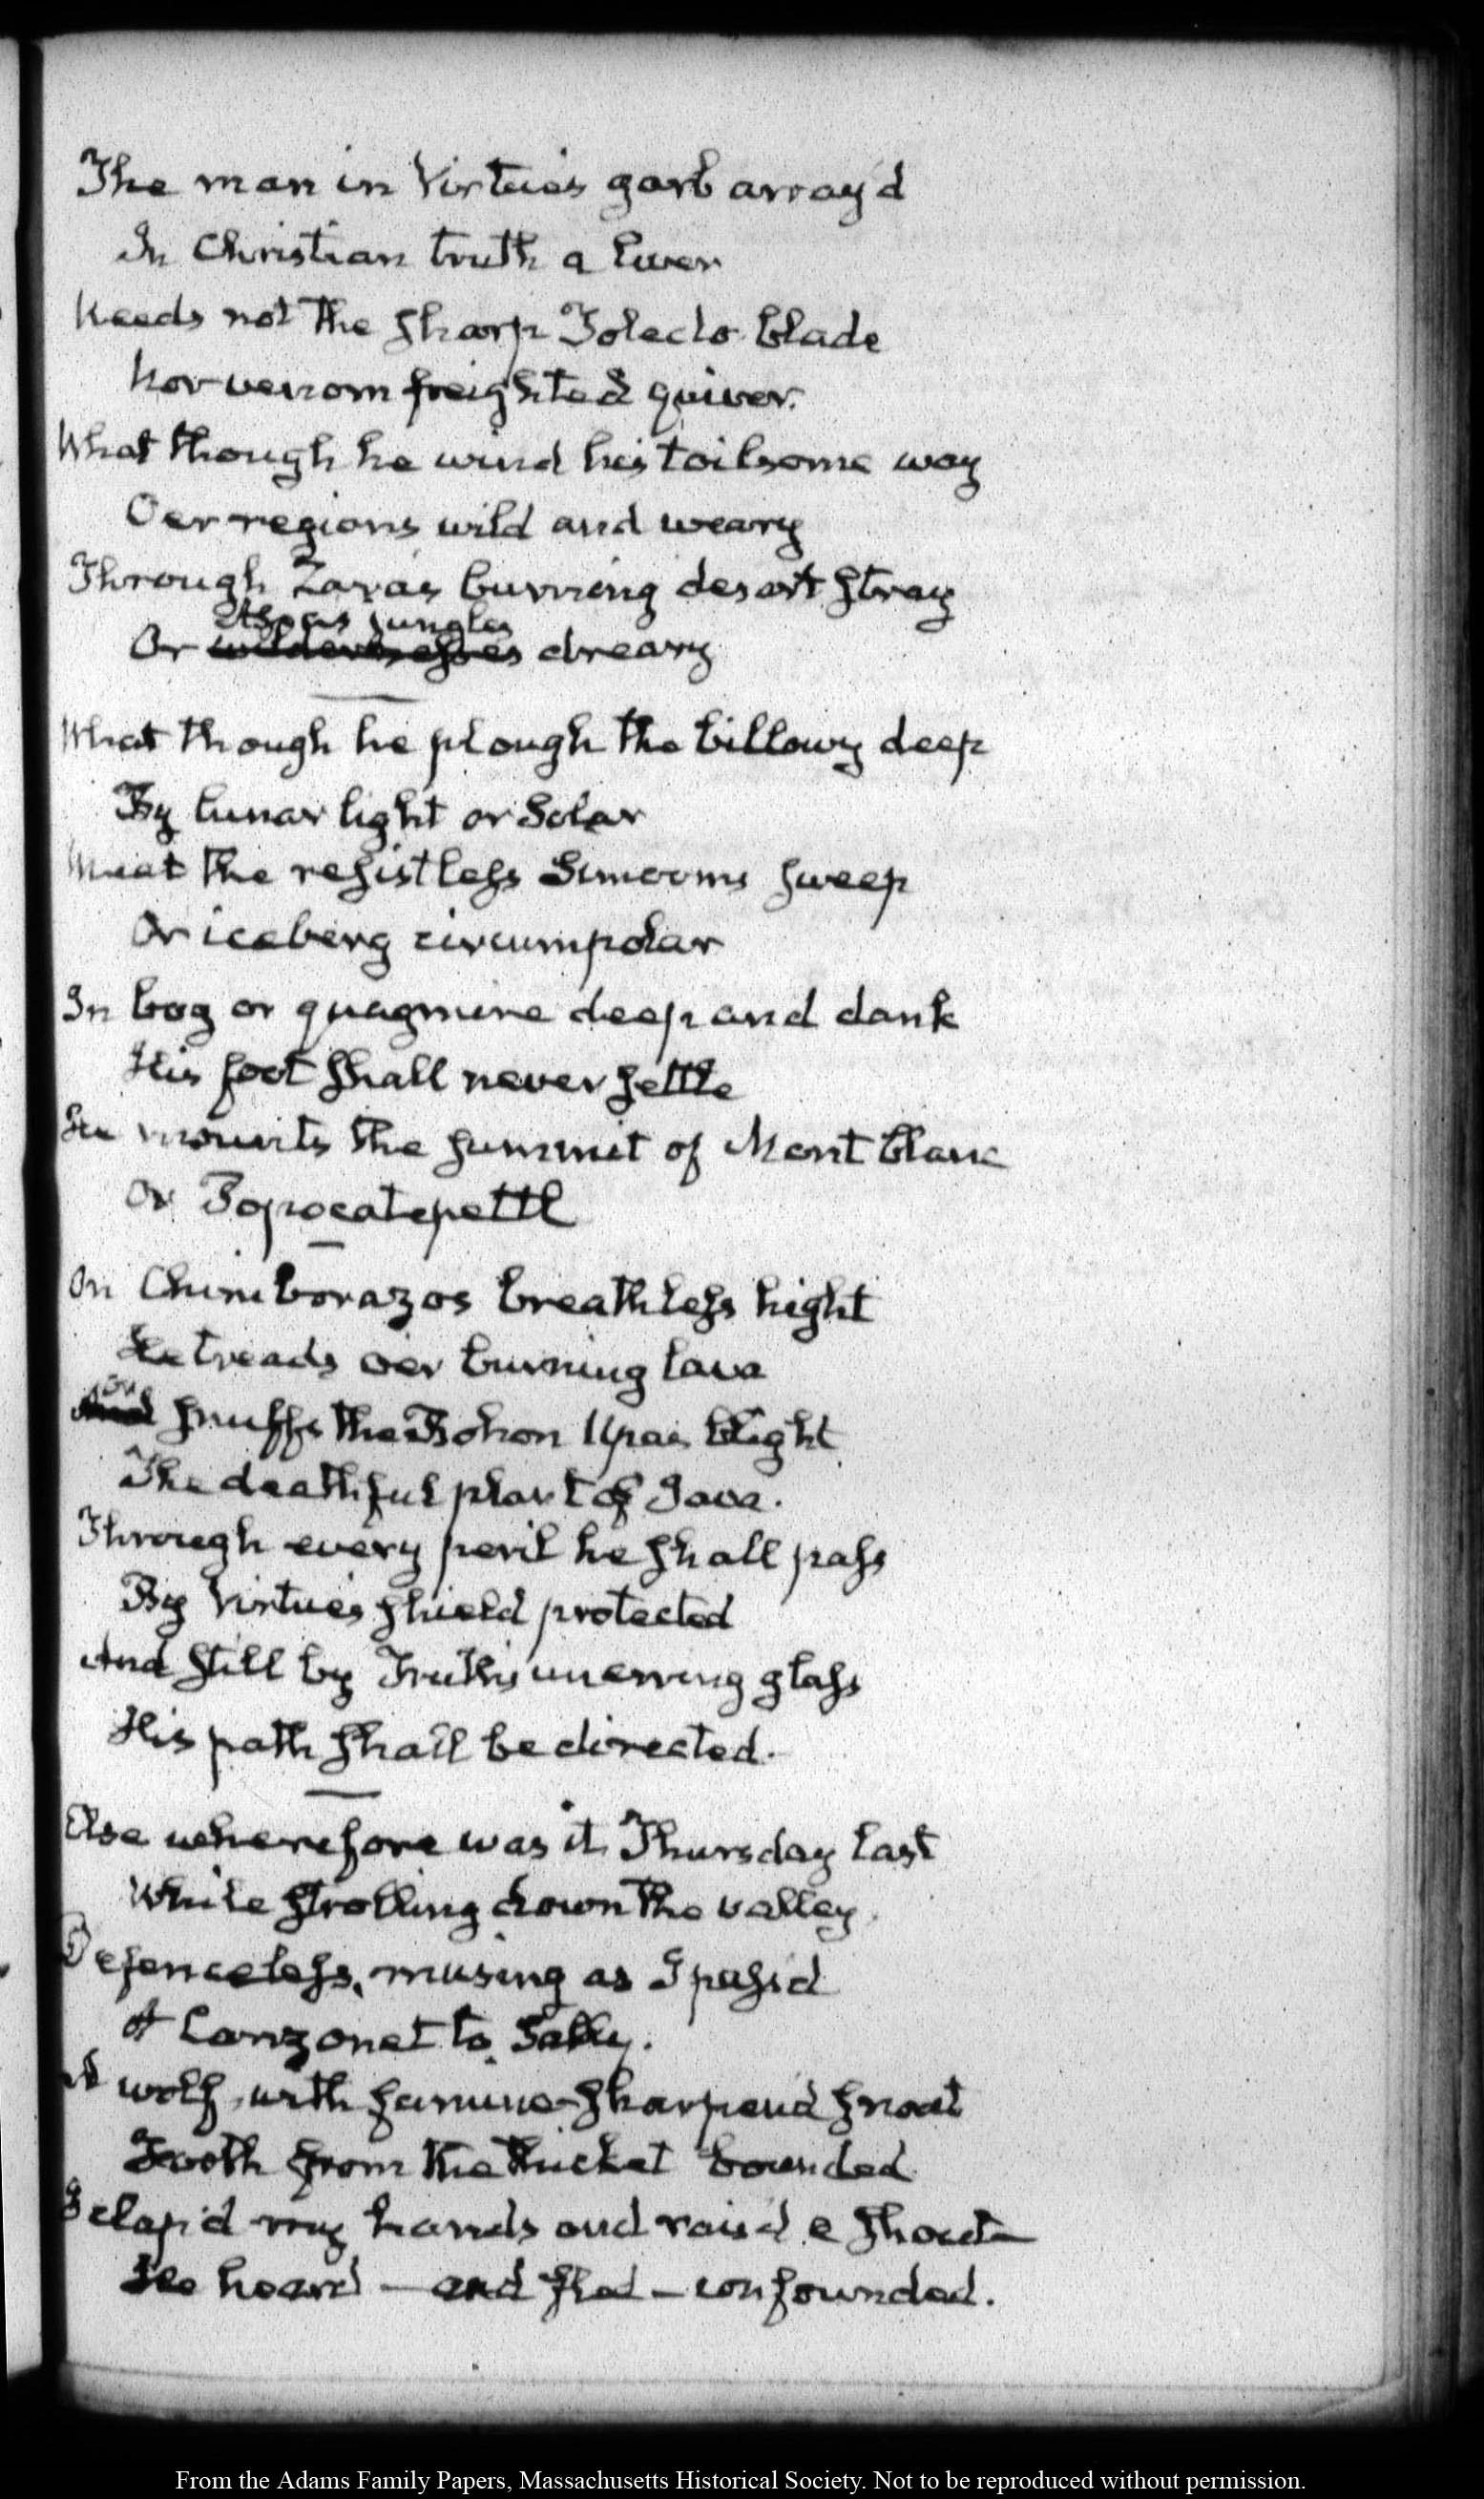 The man in Virtue's garb array'd
In Christian truth a liver
Needs not the sharp Toledo blade
Nor venom freighted quiver.
What though he wind his toilsome way
O'er regions wild and weary
Through Zara's burning desert stray
Asia's jungles
Or wildernesses dreary
What though he plough the billowy deep
By lunar light or Solar
Meet the resistless Simooms sweep
Or iceberg circumpolar
In bog or quagmire deep and dank
His foot shall never settle
He mounts the summit of Mont blanc
Or Popocatepettl
On Chimborazos breathless hight
He treads o'er burning lava
or
And snuffs the Bohon Upas blight
The deathful plant of Java.
Through every peril he shall pass
By Virtue's shield protected
And still by Truth's unerring glass
His path shall be directed.
Else wherefore was it Thursday last
While strolling down the valley
Defenceless, musing as I pass'd
A Canzonet to Sally.
A wolf, with famine-sharpen'd snout
Forth from the thicket bounded
I clap'd my hands and rais'd a shout—
He heard — and fled — confounded.
From the Adams Family Papers, Massachusetts Historical Society. Not to be reproduced without permission.